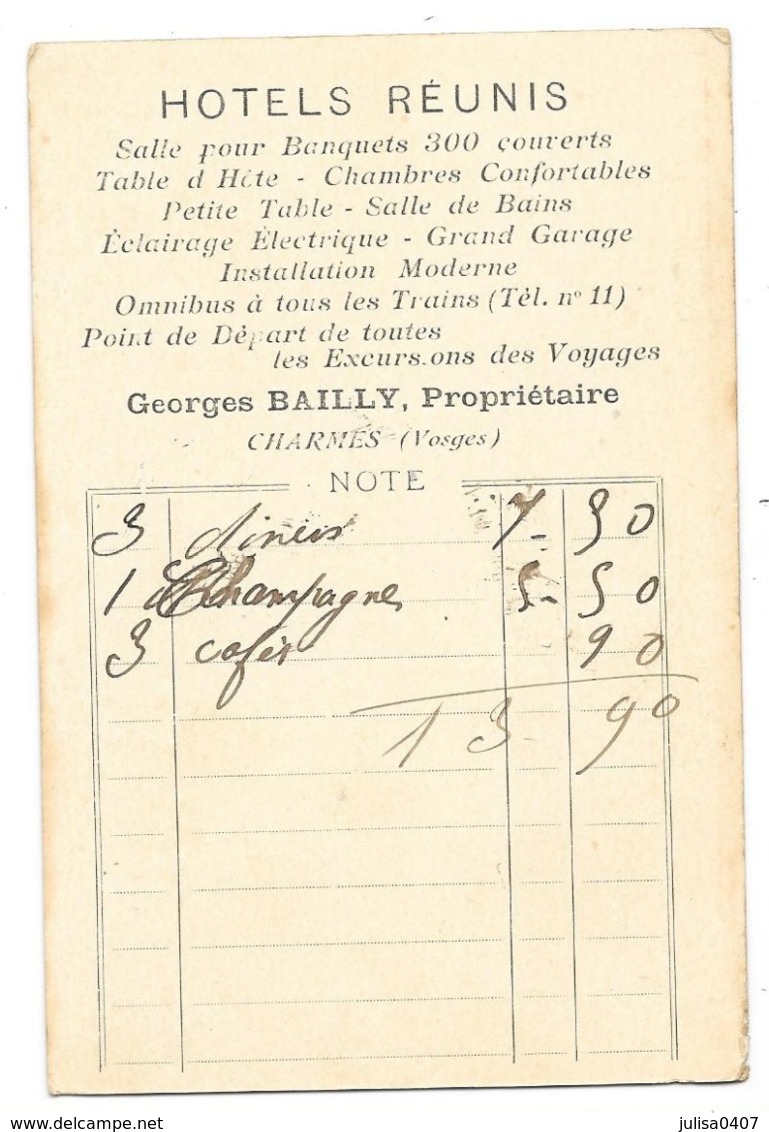 HOTELS RÉUNIS
Salle pour Banquets 300 couverts
Table d'Hôte - Chambres Confortables
Petite Table - Salle de Bains
Éclairage Électrique - Grand Garage
Installation Moderne
Omnibus à tous les Trains (Tél. nº 11)
Point de Départ de toutes
les Excursions des Voyages
Georges BAILLY, Propriétaire
CHARMES (Vosges)
NOTE
3 diners 7 - 50
1 Champagne 5 - 50
3 cafés 90
13 - 90
www.delcampe.net
julisa0407